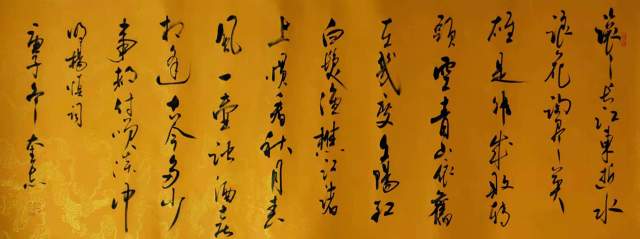 滚滚长江東逝水
浪花淘尽英
雄是非成敗转
頭空青山依舊
在幾度夕陽红
白髮渔樵江渚
上惯看秋月春
風一壶浊酒喜
相逢古今多少
事都付笑谈中
明楊慎词
庚子年